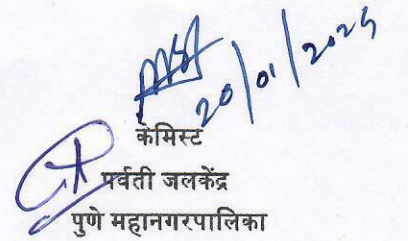 20/01/2025
केमिस्ट
पर्वती जलकेंद्र
पुणे महानगरपालिका